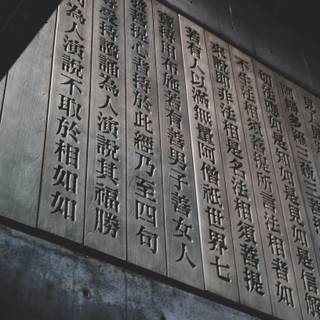 阿耨多羅三藐三菩
切法應如是知如是見如是信解
不生法相須菩提所言法相者如
來說即非法相是名法相須菩提
若有人以滿無量阿僧祇世界七
寶持用布施若有善男子善女人
菩提心者持於此經乃至四句
受持讀誦為人演說其福勝
為人演說不取於相如如